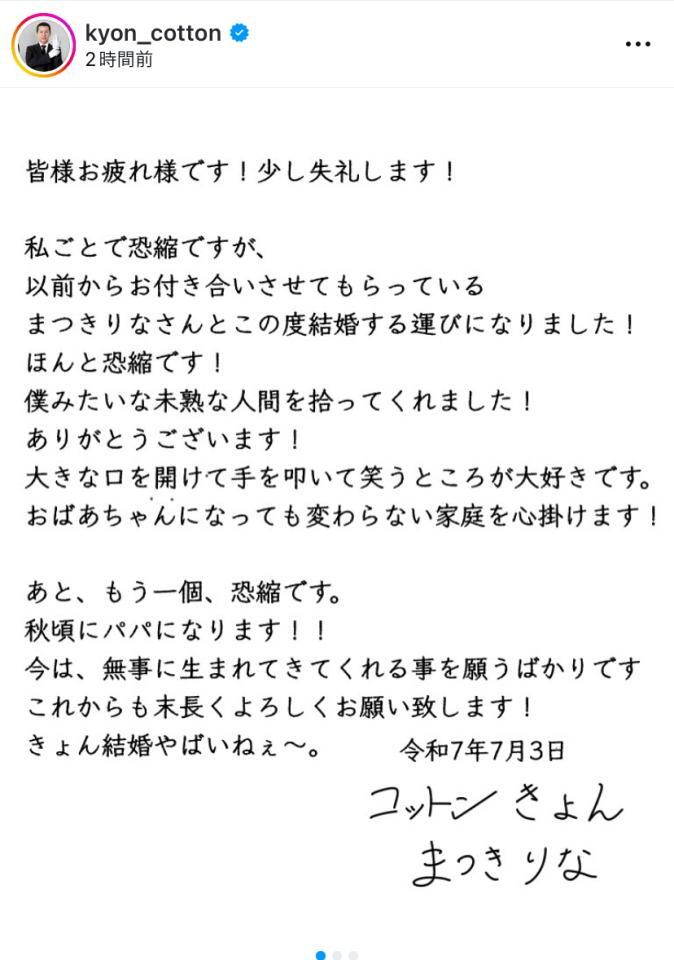 kyon_cotton
2時間前
皆様お疲れ様です！少し失礼します！
私ごとで恐縮ですが、
以前からお付き合いさせてもらっている
まつきりなさんとこの度結婚する運びになりました！
ほんと恐縮です！
僕みたいな未熟な人間を拾ってくれました！
ありがとうございます！
大きな口を開けて手を叩いて笑うところが大好きです。
おばあちゃんになっても変わらない家庭を心掛けます！
あと、もう一個、恐縮です。
秋頃にパパになります！！
今は、無事に生まれてきてくれる事を願うばかりです
これからも末長くよろしくお願い致します！
きょん結婚やばいねぇ〜。
令和7年7月3日
コットン きょん
まつきりな